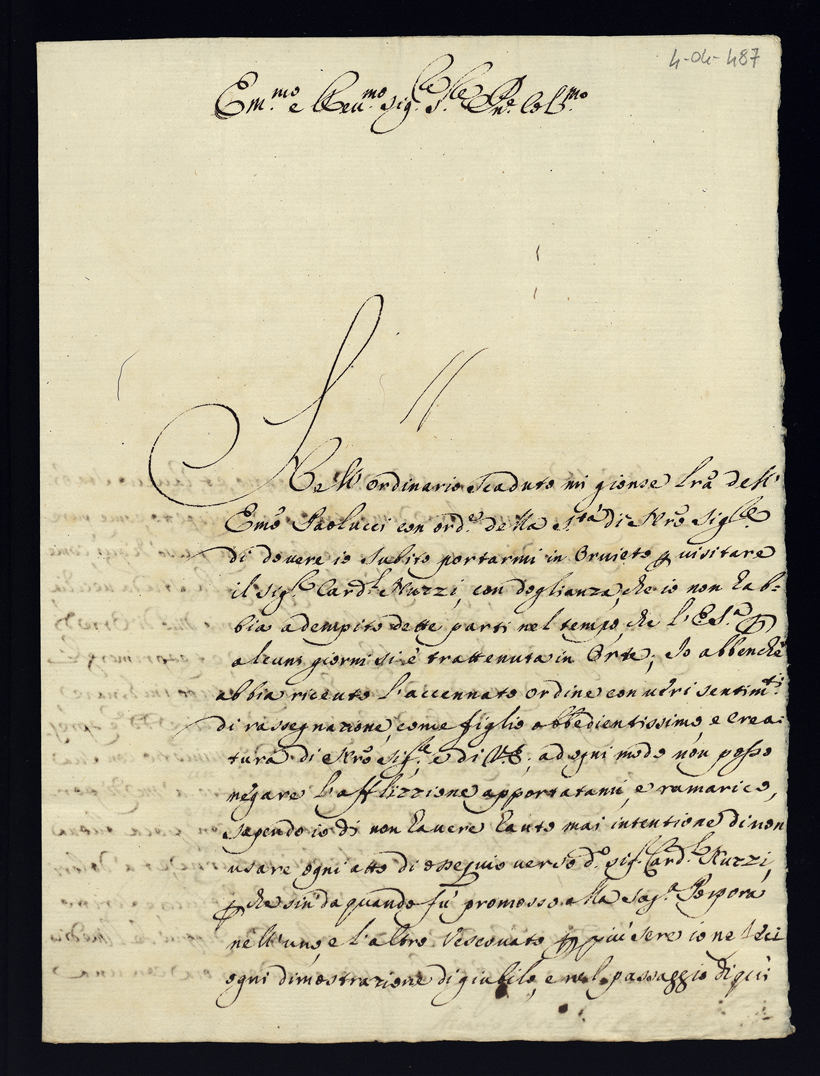 4-04-487
Em.mo e Reu.mo Sig.re S.re Pne. Col.mo
Nell' ordinario scaduto mi gionse lra dell'
Emo Paolucci con ord.e della S.tà di Nro Sig.re
di dovere io subito portarmi in Orvieto p visitare
il Sig.r Card.l Nuzzi, con doglianza, che io non hab=
bia adempito dette parti nel tempo, che l'E S.a p
alcuni giorni si è trattenuta in Orte; Io abbenche
abbia riceuto l'accennato ordine con veri sentim.ti
di rassegnazione, come figlio obbedientissimo, e crea=
tura di Nro Sig.re e di VE; ad ogni modo non posso
negare l'afflizzione apportatami, e ramarico,
sapendo io di non havere hauto mai intentione di non
usare ogni atto di ossequio verso d.o Sig.r Card.l Nuzzi,
p che sin da quando fù promosso alla Sag.a Porpora
nell'uno, e l'altro Vescovato p più sere io ne feci
ogni dimostrazione di giubilo, e nel passaggio di qui